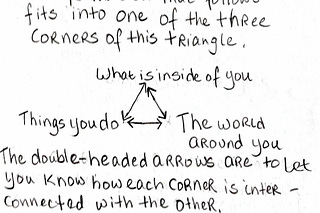 that follows
fits into one of the three
corners of this triangle.
What is inside of you
Things you do
The world
around you
The double-headed arrows are to let
you know how each corner is inter-
connected with the other.